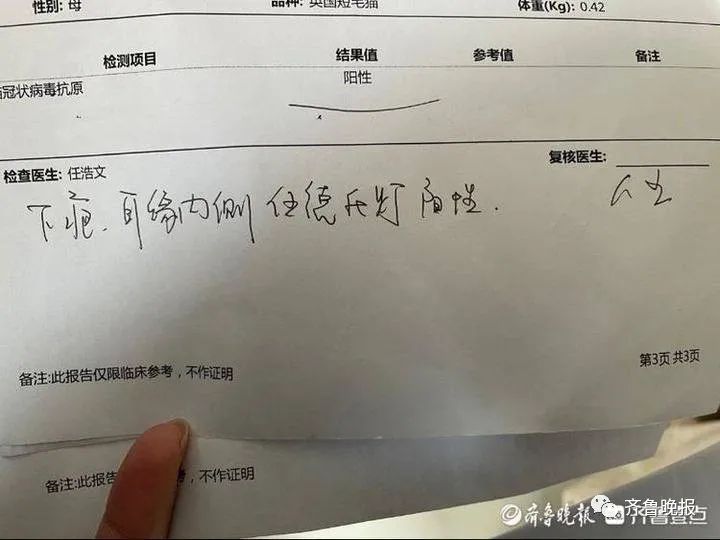 性别: 母 品种: 英国短毛猫 体重(Kg): 0.42
检测项目 结果值 参考值 备注
冠状病毒抗原 阳性
检查医生: 任浩文 复核医生:
下 耳缘内侧 伍德氏灯 阳性.
备注:此报告仅限临床参考，不作证明
第3页 共3页
备注:此报 参考，不作证明
齐鲁晚报
齐鲁晚报 齐鲁壹点